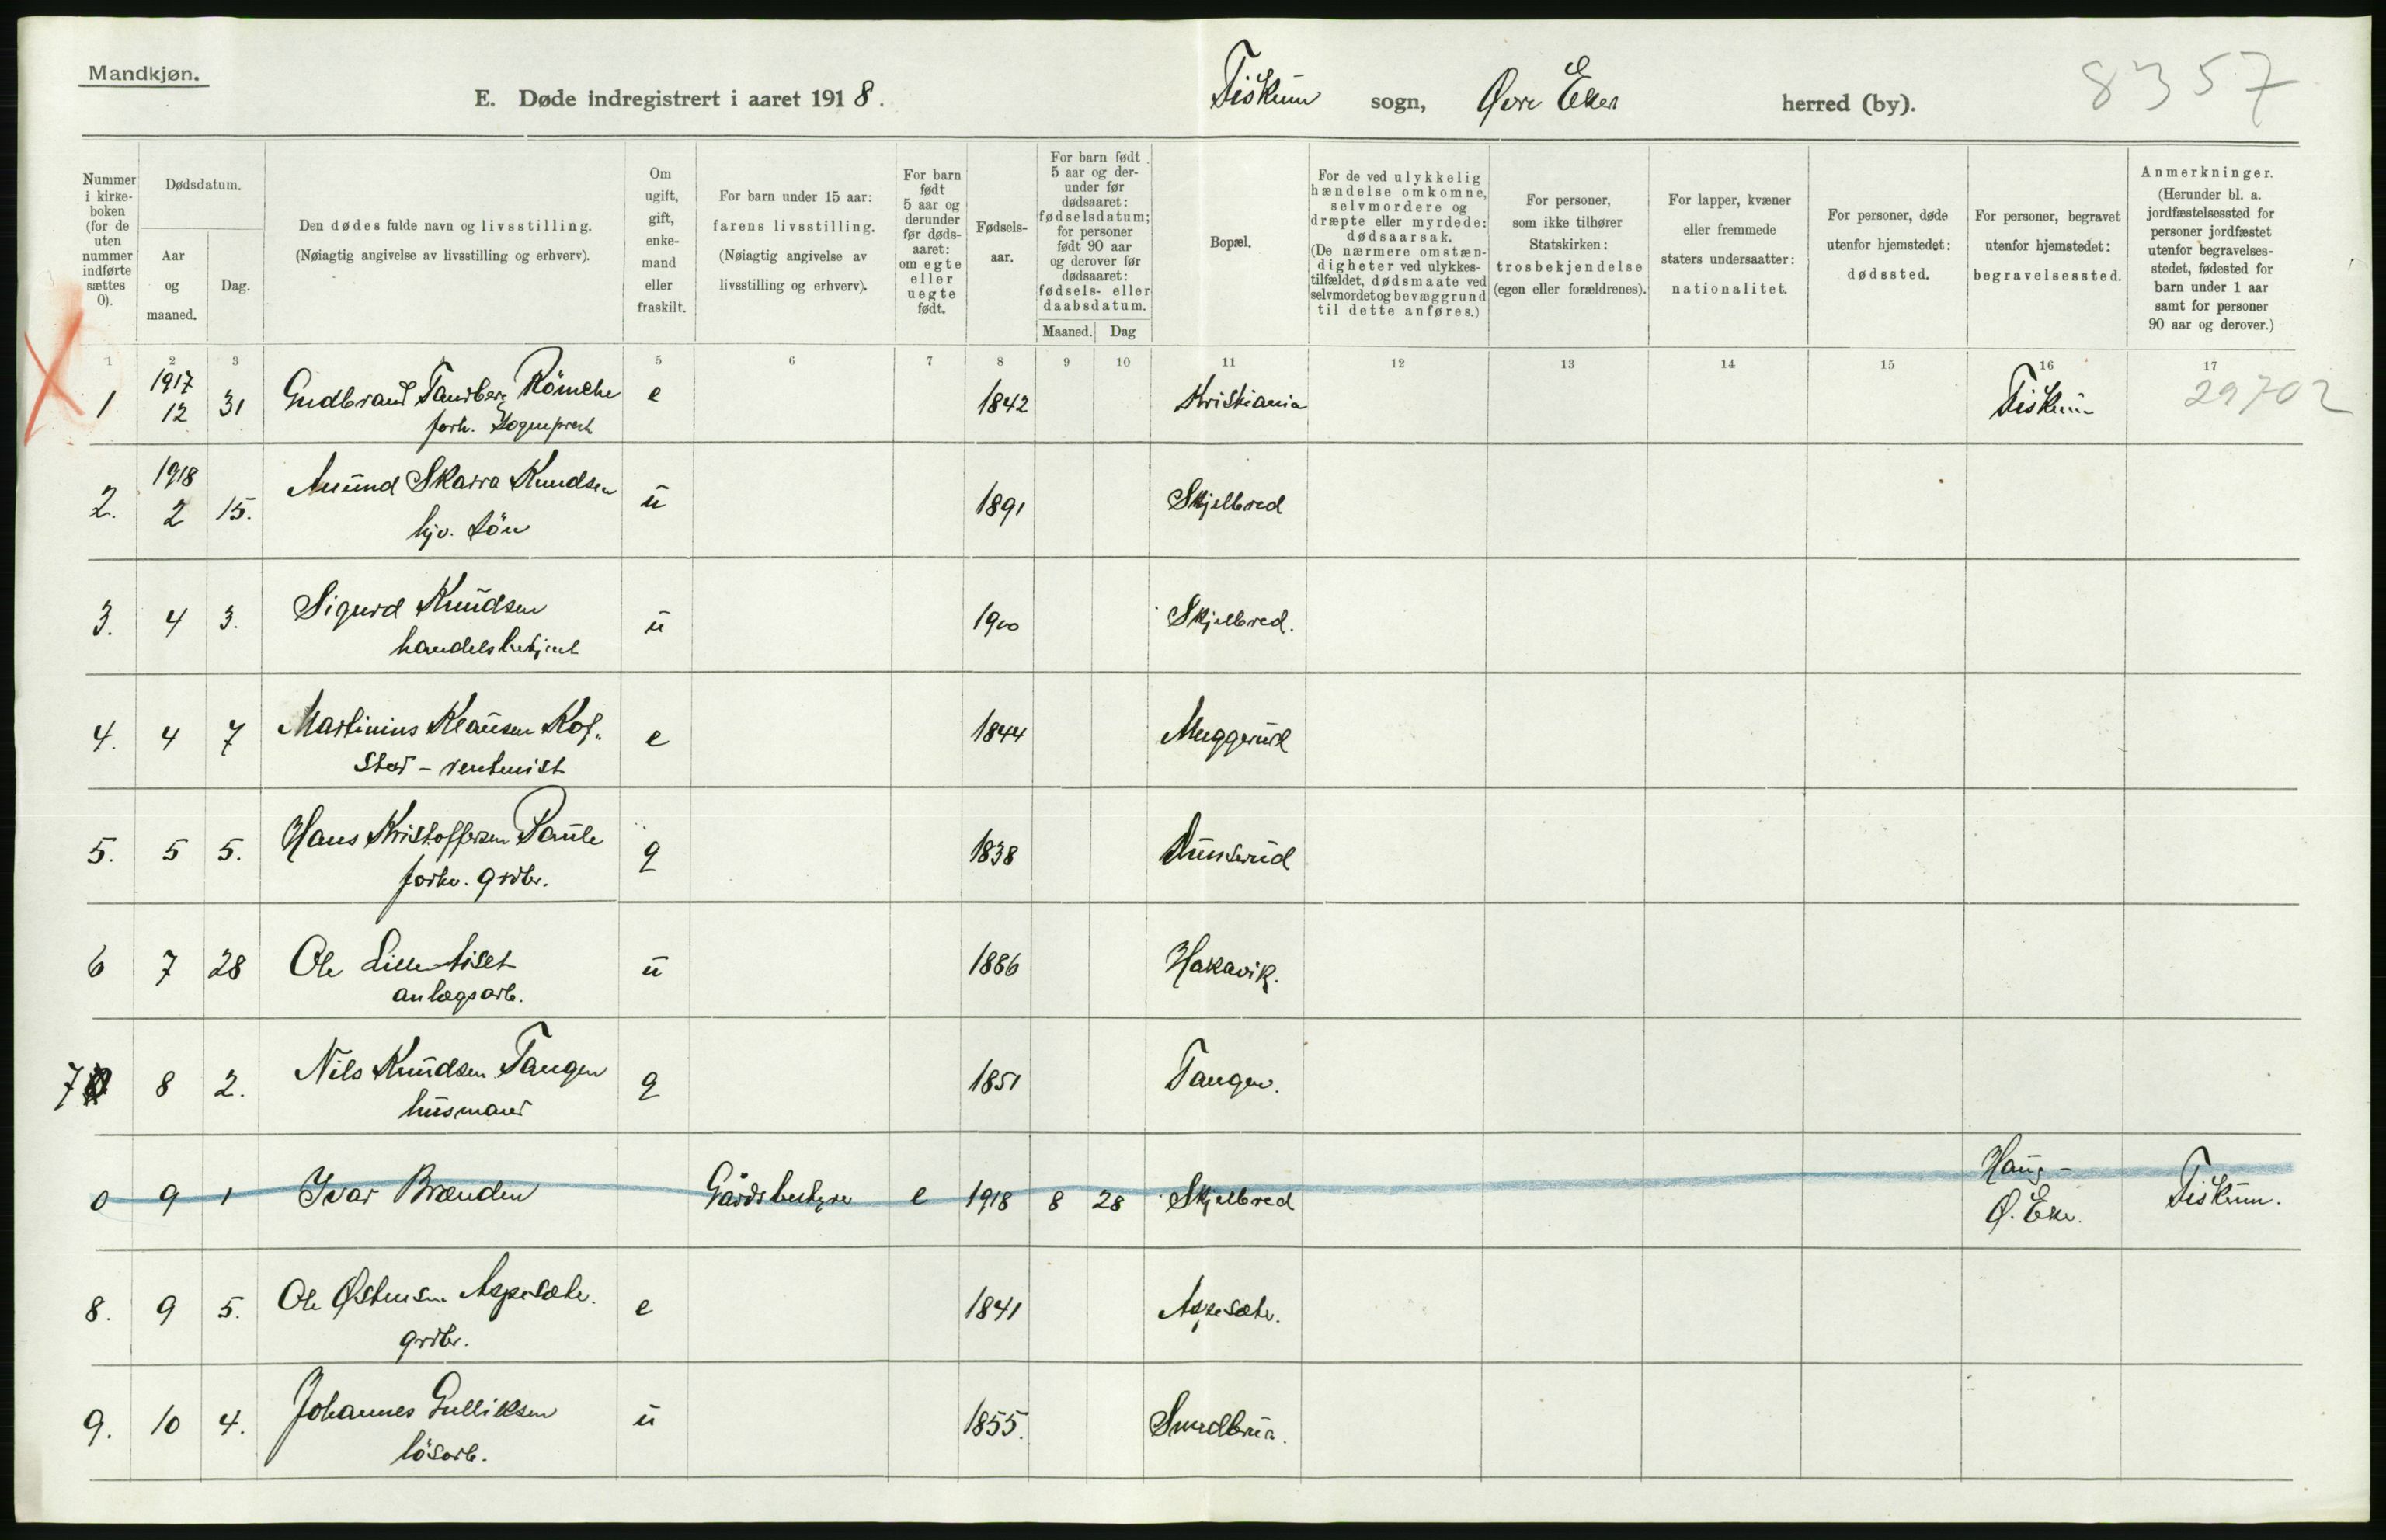 Mandkjøn.
E. Døde indregistrert i aaret 1918. Fiskum sogn, Øvre Eker herred (by).
8357
Nummer i kirke-boken (for de uten nummer indførte sættes 0).
Dødsdatum.
Aar og maaned.
Dag.
Den dødes fulde navn og livsstilling.
(Nøiagtig angivelse av livsstilling og erhverv).
Om ugift, gift, enke-mand eller fraskilt.
For barn under 15 aar: farens livsstilling.
(Nøiagtig angivelse av livsstilling og erhverv).
For barn født 5 aar og derunder før døds-aaret: om egte eller uegte født.
Fødsels-aar.
For barn født 5 aar og der-under før dødsaaret: fødselsdatum; for personer født 90 aar og derover før dødsaaret: fødsels- eller daabsdatum.
Maaned. Dag
Bopæl.
For de ved ulykkelig hændelse omkomne, selvmordere og dræpte eller myrdede: dødsaarsak.
(De nærmere omstæn-digheter ved ulykkes-tilfældet, dødsmaate ved selvmordet og bevæggrund til dette anføres.)
For personer, som ikke tilhører Statskirken: trosbekjendelse (egen eller forældrenes).
For lapper, kvæner eller fremmede staters undersaatter: nationalitet.
For personer, døde utenfor hjemstedet: dødssted.
For personer, begravet utenfor hjemstedet: begravelsessted.
Anmerkninger.
(Herunder bl. a. jordfæstelsessted for personer jordfæstet utenfor begravelses-stedet, fødested for barn under 1 aar samt for personer 90 aar og derover.)
1 2 3 5 6 7 8 9 10 11 12 13 14 15 16 17
1 1917 12 31 Gudbrand Tandberg Römcke e 1842 Kristiania Fiskum 29702
forh. Sogneprest
2. 1918 2 15. Amund Skarra Knudsen u 1891 Skjelbred
hjv. sön
3. 4 3. Sigurd Knudsen u 1900 Skjelbred.
handelsbetjent
4. 4 7 Martinius Klausen Kof- e 1844 Muggerud
stad - rentenist
5. 5 5. Hans Kristoffersen Paule g 1838 Dunserud
forhv. grdbr.
6 7 28 Ole Lille-tiset u 1886 Hakavik.
anlægsarb.
7 8 2. Nils Knudsen Tangen g 1851 Tangen.
husmand
0 9 1 Ivar Brænden Gårdsbestyrer e 1918 8 28 Skjelbred Haug - Ø. Eker. Fiskum.
8. 9 5. Ole Østensen Aspesæter. e 1841 Aspesæter.
grdbr.
9. 10 4. Johannes Gulliksen u 1855. Smedbrua.
lösarb.